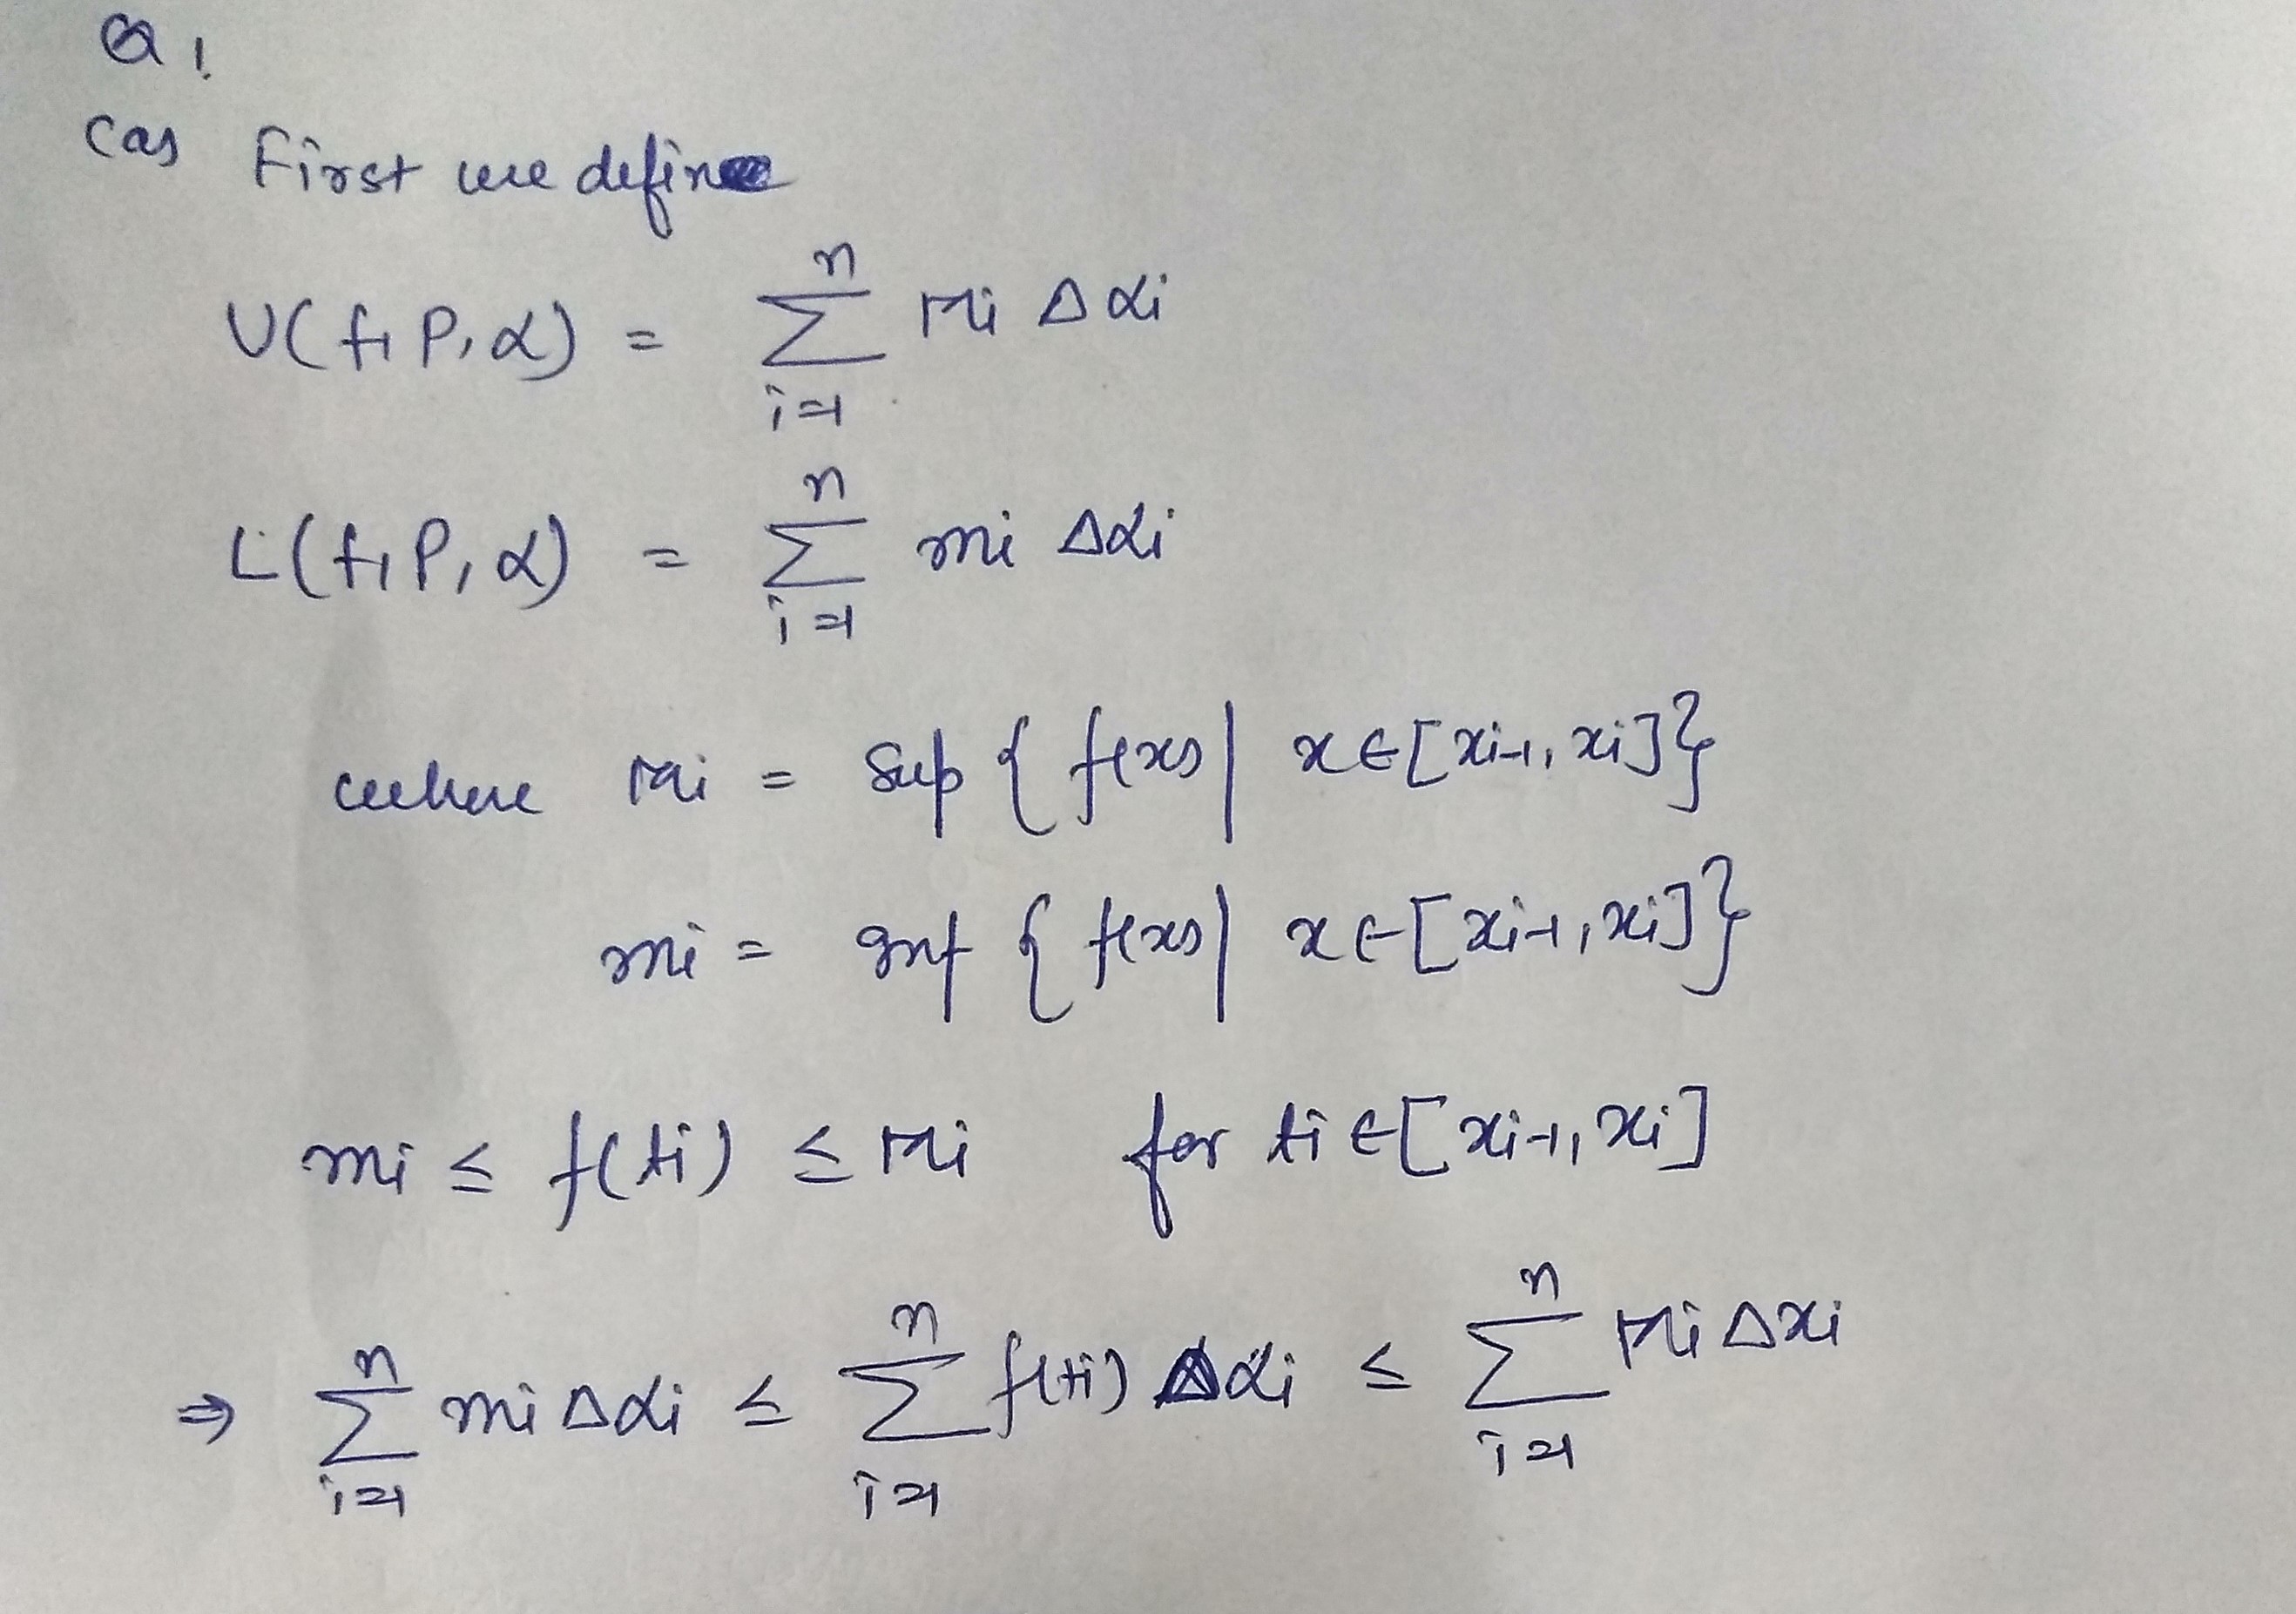 Q1
(a) First we define
U(f, P, α) = \sum_{i=1}^{n} M_i Δα_i
L(f, P, α) = \sum_{i=1}^{n} m_i Δα_i
where M_i = Sup { f(x) | x ∈ [x_{i-1}, x_i] }
m_i = Inf { f(x) | x ∈ [x_{i-1}, x_i] }
m_i ≤ f(t_i) ≤ M_i for t_i ∈ [x_{i-1}, x_i]
⇒ \sum_{i=1}^{n} m_i Δα_i ≤ \sum_{i=1}^{n} f(t_i) Δα_i ≤ \sum_{i=1}^{n} M_i Δx_i